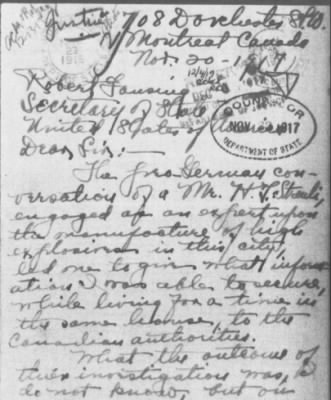 Justice
708 Dorchester St W.
Montreal Canada
Nov. 20 - 1917
Robert Lansing
Secretary of State
United States of America
Dear Sir:-
COUNSELOR
NOV 1917
DEPARTMENT OF STATE
The pro-German con-
versation of a Mr. H.
engaged as an expert upon
the manufacture of high
explosives in this city,
led me to give what inform-
ation I was able to secure,
while living for a time in
the same house, to the
Canadian authorities.
What the outcome of
their investigation was, I
do not know, but on